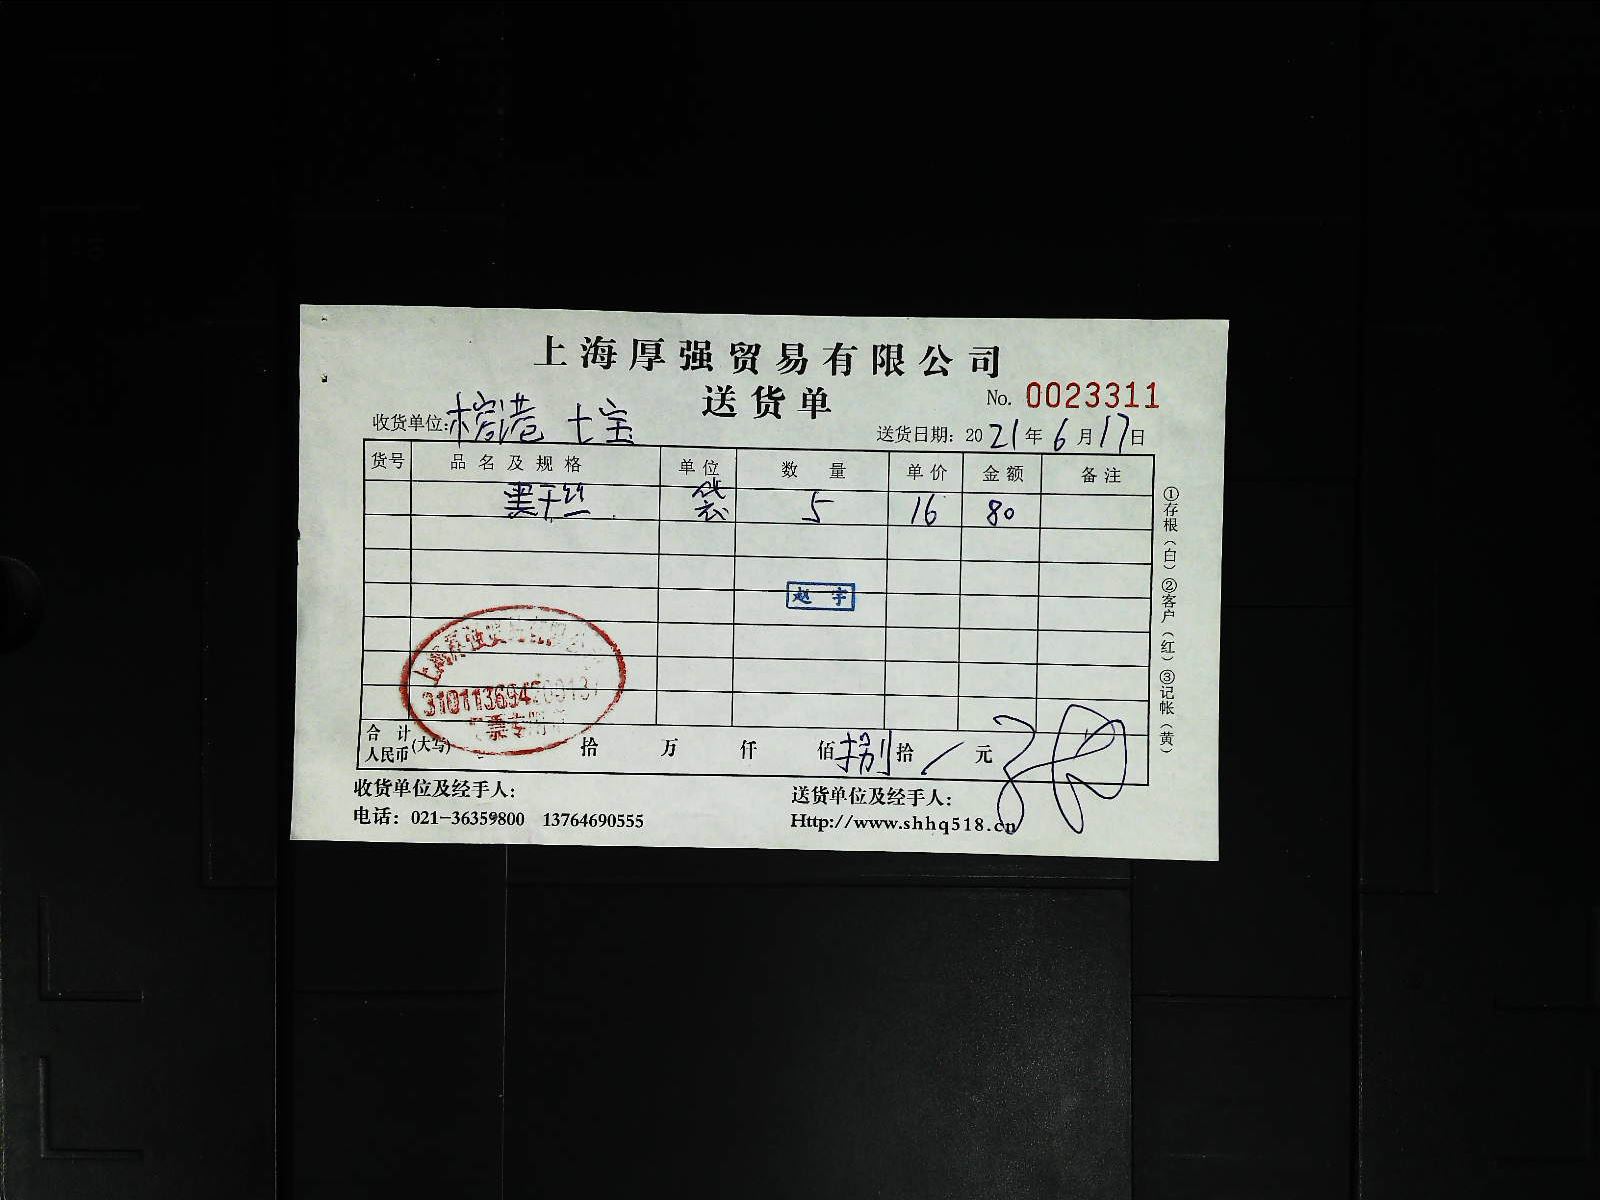 上海厚强贸易有限公司
送货单
No. 0023311
收货单位:榕港 七宝
送货日期: 2021年6月17日
货号 品名及规格 单位 数量 单价 金额 备注
黑干丝 袋 5 16 80
赵宇
上海厚强贸易有限公
310113694
票专用
合计人民币(大写) 拾 万 仟 佰 捌拾 / 元
收货单位及经手人:
送货单位及经手人:
电话: 021-36359800 13764690555
Http://www.shhq518.cn
①存根(白)②客户(红)③记帐(黄)